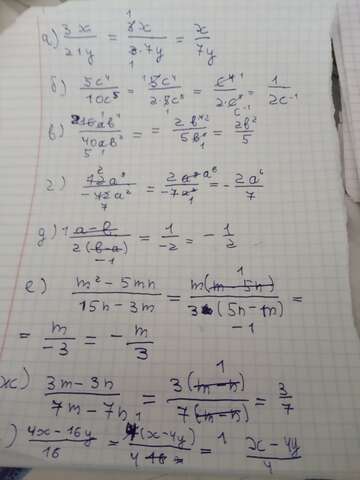 а) 3x/21y = 3x/3·7y = x/7y
б) 5c⁴/10c⁵ = 5c⁴/2·5c⁵ = c⁴/2·c⁵ = 1/2c⁻¹
в) 16ab⁴/40ab² = 2b⁴/5b² = 2b²/5
г) 12a⁸/-42a² = 2a⁸/-7a² = -2a⁶/7
д) a-b/2(b-a) = 1/-2 = -1/2
е) m²-5mn/15n-3m = m(m-5n)/3(5n-m) =
= m/-3 = -m/3
ж) 3m-3n/7m-7n = 3(m-n)/7(m-n) = 3/7
) 4x-16y/16 = 4(x-4y)/16 = x-4y/4